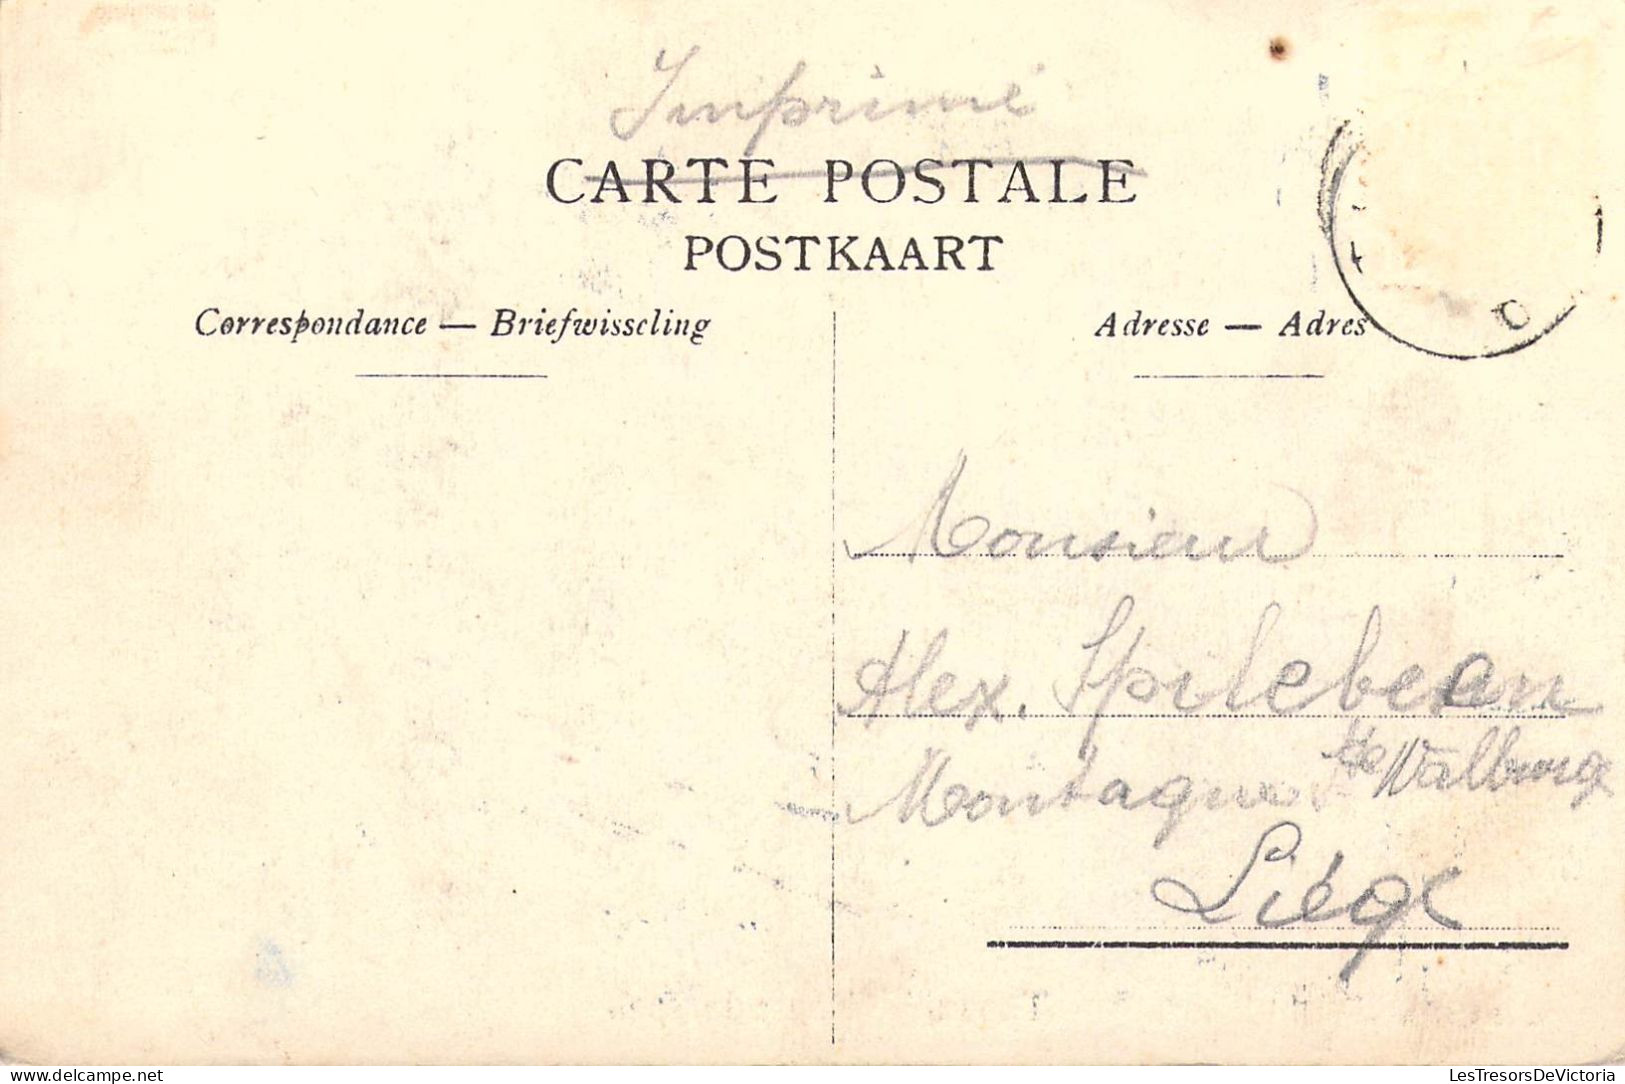 Imprimé
CARTE POSTALE
POSTKAART
Correspondance — Briefwisseling
Adresse — Adres
Monsieur
Alex. Spilebeen
Montagne Ste Walburge
Liége
LesTresorsDeVictoria